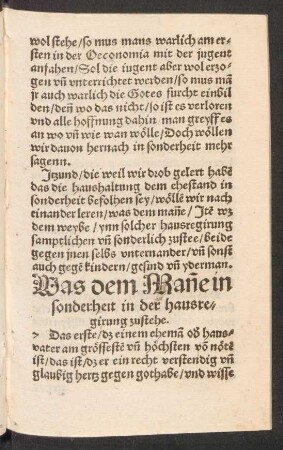 wol stehe/so mus mans warlich am er-
sten in der Oeconomia mit der jugent
anfahen/Sol die iugent aber wol erzo-
gen vñ vnterrichtet werden/so mus mā
jr auch warlich die Gotes furcht einbil
den/deñ wo das nicht/so ist es verloren
vnd alle hoffnung dahin man greyff es
an wo vñ wie wan wölle/Doch wöllen
wir dauon hernach in sonderheit mehr
sagenn.
Jtzund/die weil wir drob gelert habē
das die haushaltung dem ehestand in
sonderheit befolhen sey/wöllē wir nach
einander leren/was dem mañe/Jtē wz
dem weybe/ynn solcher hausregirung
samptlichen vñ sonderlich zustee/beide
gegen jnen selbs vnternander/vñ sonst
auch gegē kindern/gesind vñ yderman.
Was dem Mañe in
sonderheit in der hausre-
girung zustehe.
> Das erste/dz einem ehemā oð haus-
vater am grössestē vñ höchsten vō nötē
ist/das ist/dz er ein recht verstendig vñ
glaubig hertz gegen got habe/vnd wisse